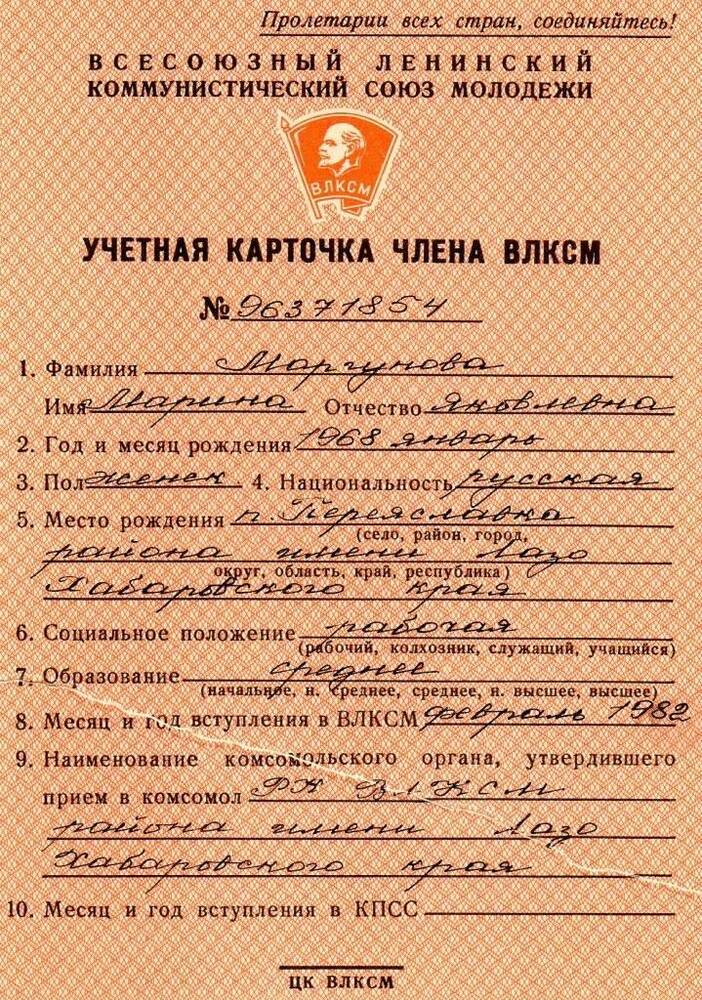 Пролетарии всех стран, соединяйтесь!
ВСЕСОЮЗНЫЙ ЛЕНИНСКИЙ
КОММУНИСТИЧЕСКИЙ СОЮЗ МОЛОДЕЖИ
ВЛКСМ
УЧЕТНАЯ КАРТОЧКА ЧЛЕНА ВЛКСМ
№ 96371854
1. Фамилия Моргунова
Имя Марина Отчество Яковлевна
2. Год и месяц рождения 1968 январь
3. Пол женск 4. Национальность русская
5. Место рождения п. Переяславка
(село, район, город,
района имени Лазо
округ, область, край, республика)
Хабаровского края
6. Социальное положение рабочая
(рабочий, колхозник, служащий, учащийся)
7. Образование среднее
(начальное, н. среднее, среднее, н. высшее, высшее)
8. Месяц и год вступления в ВЛКСМ февраль 1982
9. Наименование комсомольского органа, утвердившего
прием в комсомол РК ВЛКСМ
района имени Лазо
Хабаровского края
10. Месяц и год вступления в КПСС
ЦК ВЛКСМ